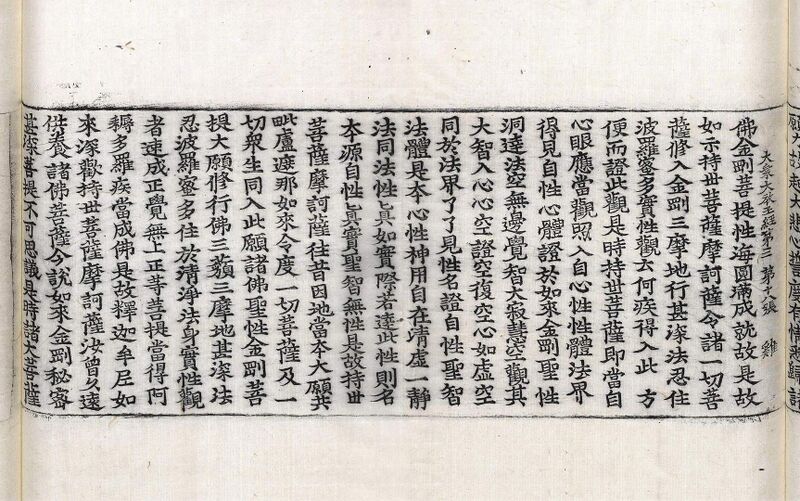 起大悲心誓度有情悉歸諸
大乘大教王經第三 第十八張 雞
佛金剛菩提性海圓滿成就故是故
如示持世菩薩摩訶薩令諸一切菩
薩修入金剛三摩地行甚深法忍住
波羅蜜多實性觀云何疾得入此方
便而證此觀是時持世菩薩即當自
心眼應當觀照入自心性性體法界
得見自性心體證於如來金剛聖性
洞達法空無邊覺智大寂慧空觀其
大智入心心空證空復空心如虛空
同於法界了了見性名證自性聖智
法體是本心性神用自在清虛一靜
法同法性真如實際若達此性則名
本源自性真實聖智無性是故持世
菩薩摩訶薩往昔因地當本大願共
毗盧遮那如來令度一切菩薩及一
切衆生同入此願諸佛聖性金剛菩
提大願修行佛三藐三摩地甚深法
忍波羅蜜多住於清淨法身實性觀
者速成正覺無上正等菩提當得阿
耨多羅疾當成佛是故釋迦牟尼如
來深歡持世菩薩摩訶薩汝曾久遠
供養諸佛菩薩今說如來金剛秘密
甚深菩提不可思議是時諸大菩薩